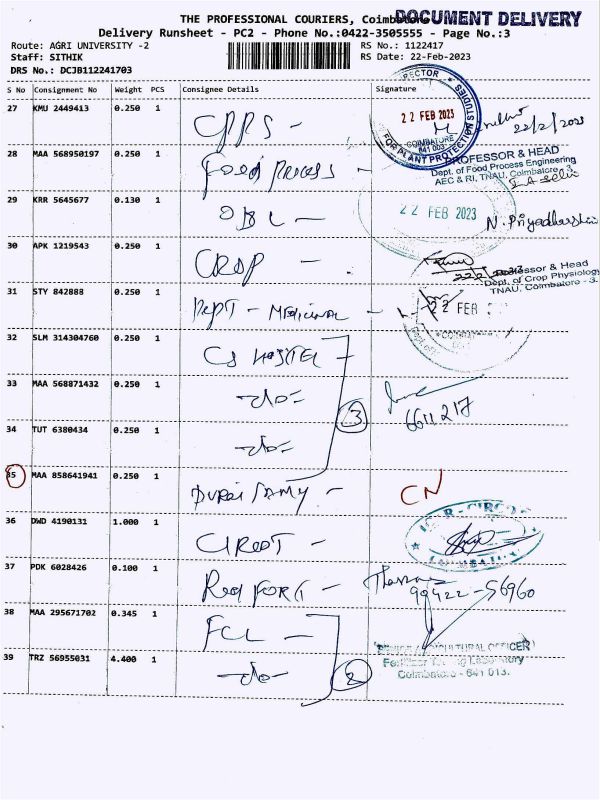 THE PROFESSIONAL COURIERS, Coimbatore
DOCUMENT DELIVERY
Delivery Runsheet - PC2 - Phone No.:0422-3505555 - Page No.:3
Route: AGRI UNIVERSITY -2
RS No.: 1122417
Staff: SITHIK
RS Date: 22-Feb-2023
DRS No.: DCJB112241703
S No Consignment No Weight PCS Consignee Details Signature
27 KMU 2449413 0.250 1 CPPS -
22 FEB 2023
FOR PLANT PROTECTION STUDIES
COIMBATORE
641 003
22/2/2023
28 MAA 568950197 0.250 1 Food Process -
PROFESSOR & HEAD
Dept. of Food Process Engineering
AEC & RI, TNAU, Coimbatore - 3.
29 KRR 5645677 0.130 1 DBL -
22 FEB 2023
N. Priyadharshini
30 APK 1219543 0.250 1 CROP -
Professor & Head
Dept. of Crop Physiology
TNAU, Coimbatore - 3.
31 STY 842888 0.250 1 Dept - Medicinal -
22 FEB
32 SLM 314304760 0.250 1 CS HOSTEL
33 MAA 568871432 0.250 1 -do-
3
6611217
34 TUT 6380434 0.250 1 -do-
35 MAA 858641941 0.250 1 DURAI SAMY -
CN
36 DWD 4190131 1.000 1 CIRCOT -
37 PDK 6028426 0.100 1 Red FORT -
99422-56960
38 MAA 295671702 0.345 1 FCL -
SENIOR AGRICULTURAL OFFICER
Fertilizer Testing Laboratory
Coimbatore - 641 013.
39 TRZ 56955031 4.400 1 -do-
2